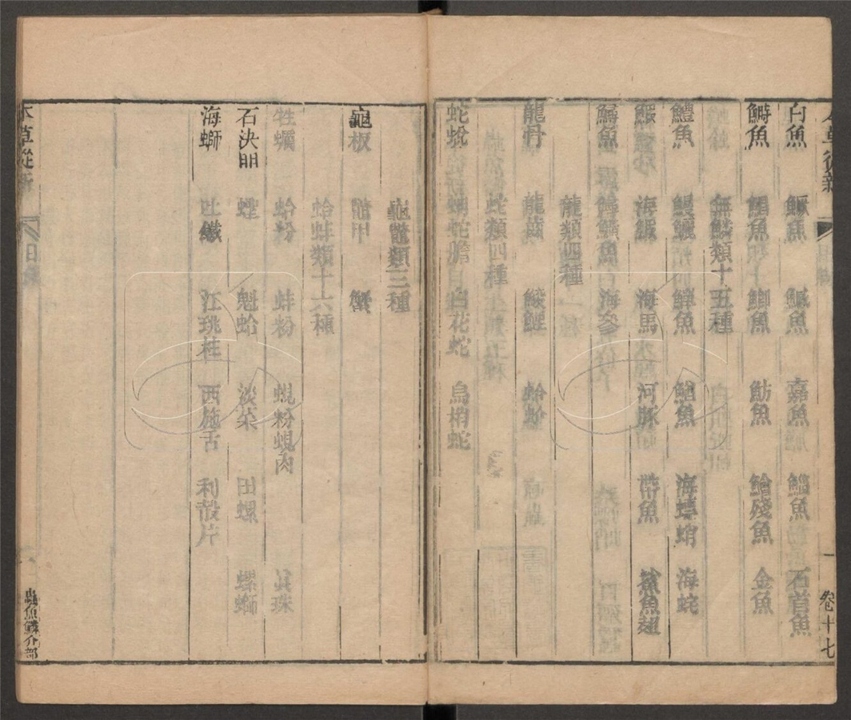 本草從新 一 卷十七
白魚 鱖魚 嘉魚 石首魚
鰣魚 鯽魚 魴魚 鱠殘魚 金魚
無鱗類十五種
鱧魚 鰻鱺 鱓魚 鰌魚 海螵蛸 海蛇
鰕 海鰕 海馬 河豚 帶魚 鯊魚翅
鱘魚 鱘鰉魚 海參
龍類四種
龍骨 龍齒 鯪鯉 蛤蚧
蛇類四種
蛇蛻 蚺蛇膽 白花蛇 烏梢蛇
龜鼈類三種
龜板 鼈甲 蟹
蛤蚌類十六種
牡蠣 蛤粉 蚌粉 蜆粉蜆肉 真珠
石決明 蟶 魁蛤 淡菜 田螺 螺螄
海螄 吐鐵 江珧柱 西施舌 利殼片
本草從新 目錄 一 蟲魚鱗介部